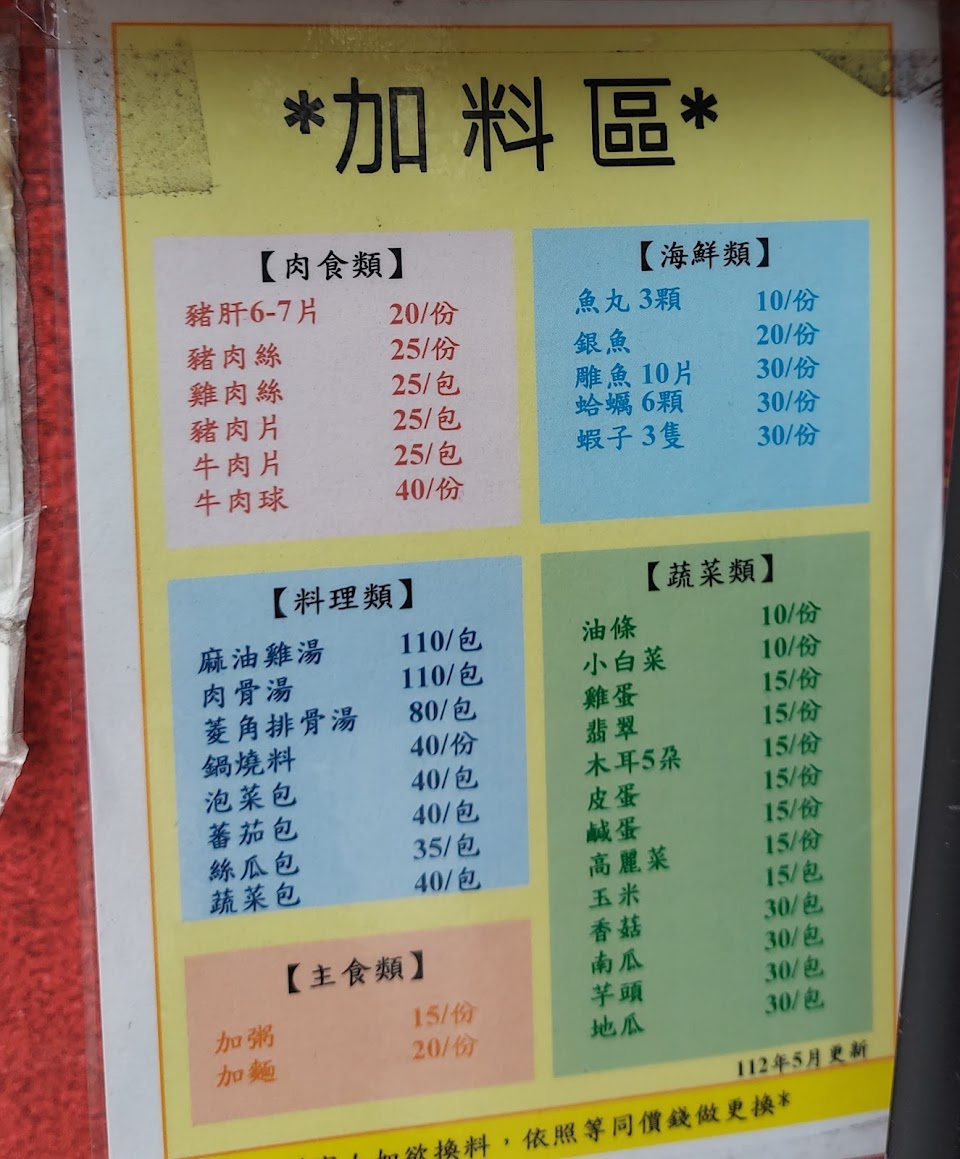 *加料區*
【肉食類】
豬肝6-7片 20/份
豬肉絲 25/份
雞肉絲 25/包
豬肉片 25/包
牛肉片 25/包
牛肉球 40/份
【海鮮類】
魚丸 3顆 10/份
銀魚 20/份
雕魚 10片 30/份
蛤蠣 6顆 30/份
蝦子 3隻 30/份
【料理類】
麻油雞湯 110/包
肉骨湯 110/包
菱角排骨湯 80/包
鍋燒料 40/份
泡菜包 40/包
蕃茄包 40/包
絲瓜包 35/包
蔬菜包 40/包
【蔬菜類】
油條 10/份
小白菜 10/份
雞蛋 15/份
翡翠 15/份
木耳5朵 15/份
皮蛋 15/份
鹹蛋 15/份
高麗菜 15/份
玉米 15/包
香菇 30/包
南瓜 30/包
芋頭 30/包
地瓜 30/包
【主食類】
加粥 15/份
加麵 20/份
112年5月更新
如欲換料，依照等同價錢做更換*